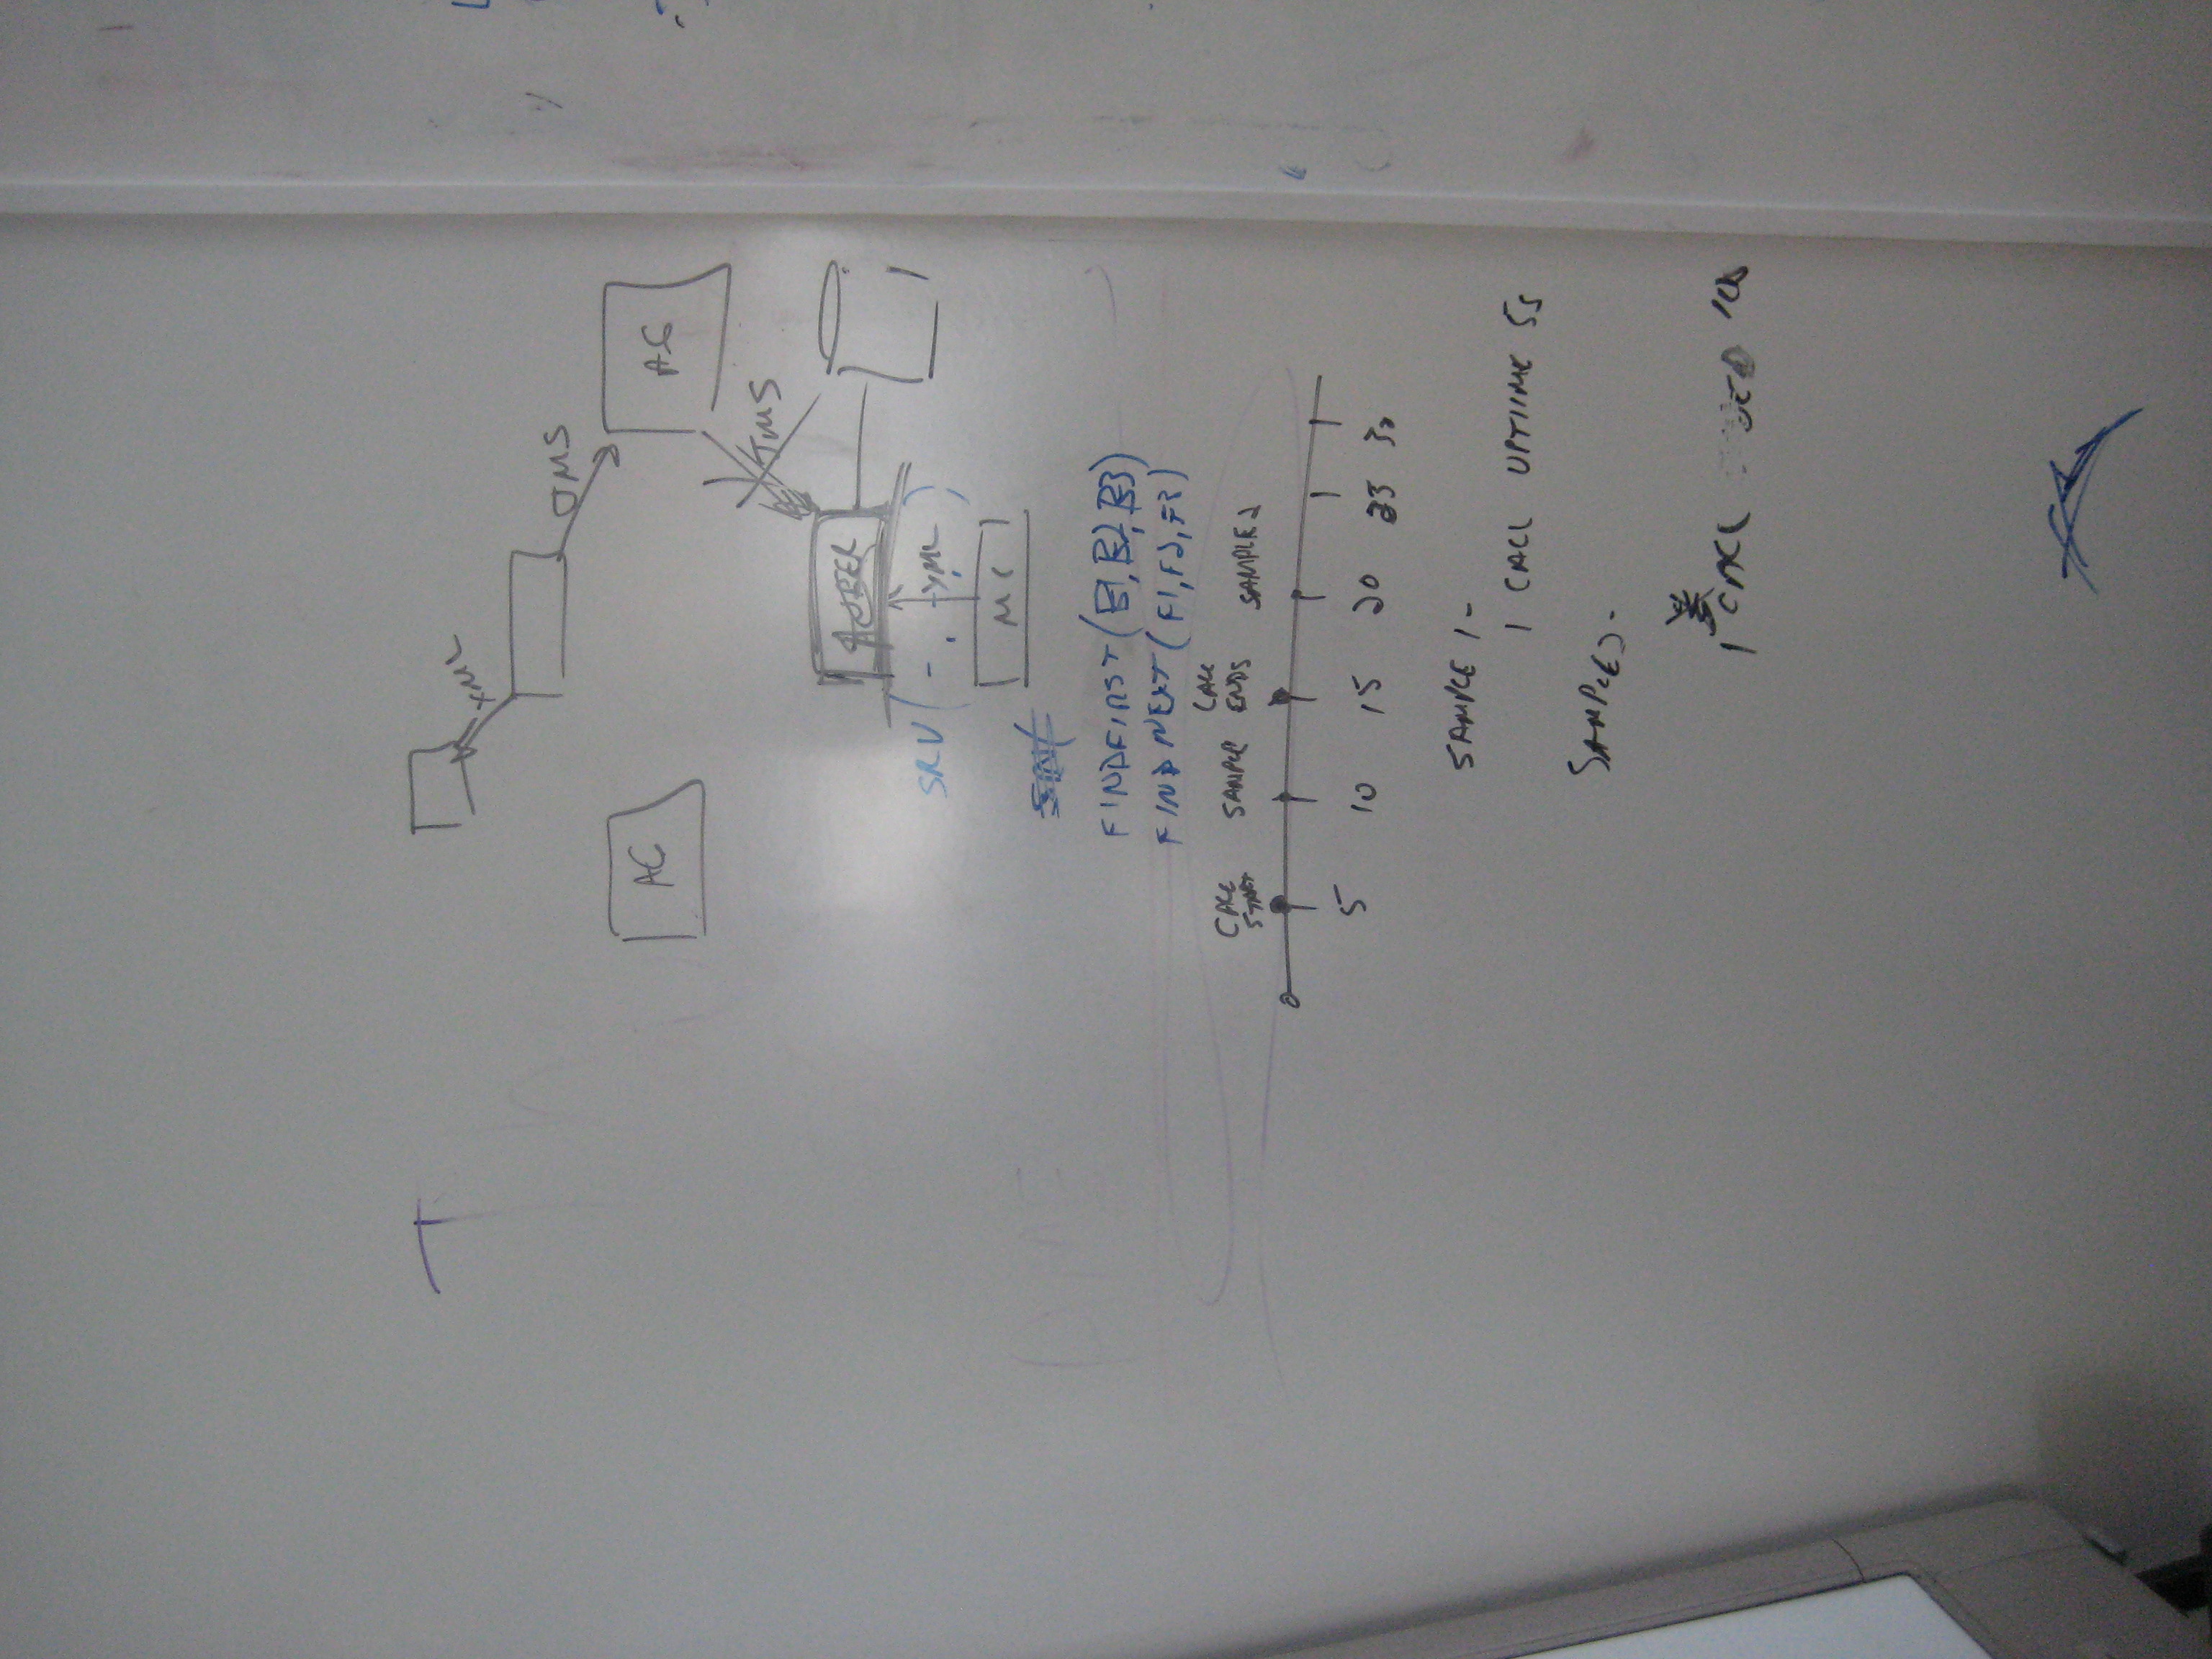 JMS
AC
AC
JMS
SRV (
MC
FINDFIRST (B1, B2, B3)
FINDNEXT (F1, F2, F3)
CALL START
SAMPLE
CALL ENDS
SAMPLE 2
0 5 10 15 20 25 30
SAMPLE 1 -
1 CALL UPTIME 5s
SAMPLE 2 -
1 CALL